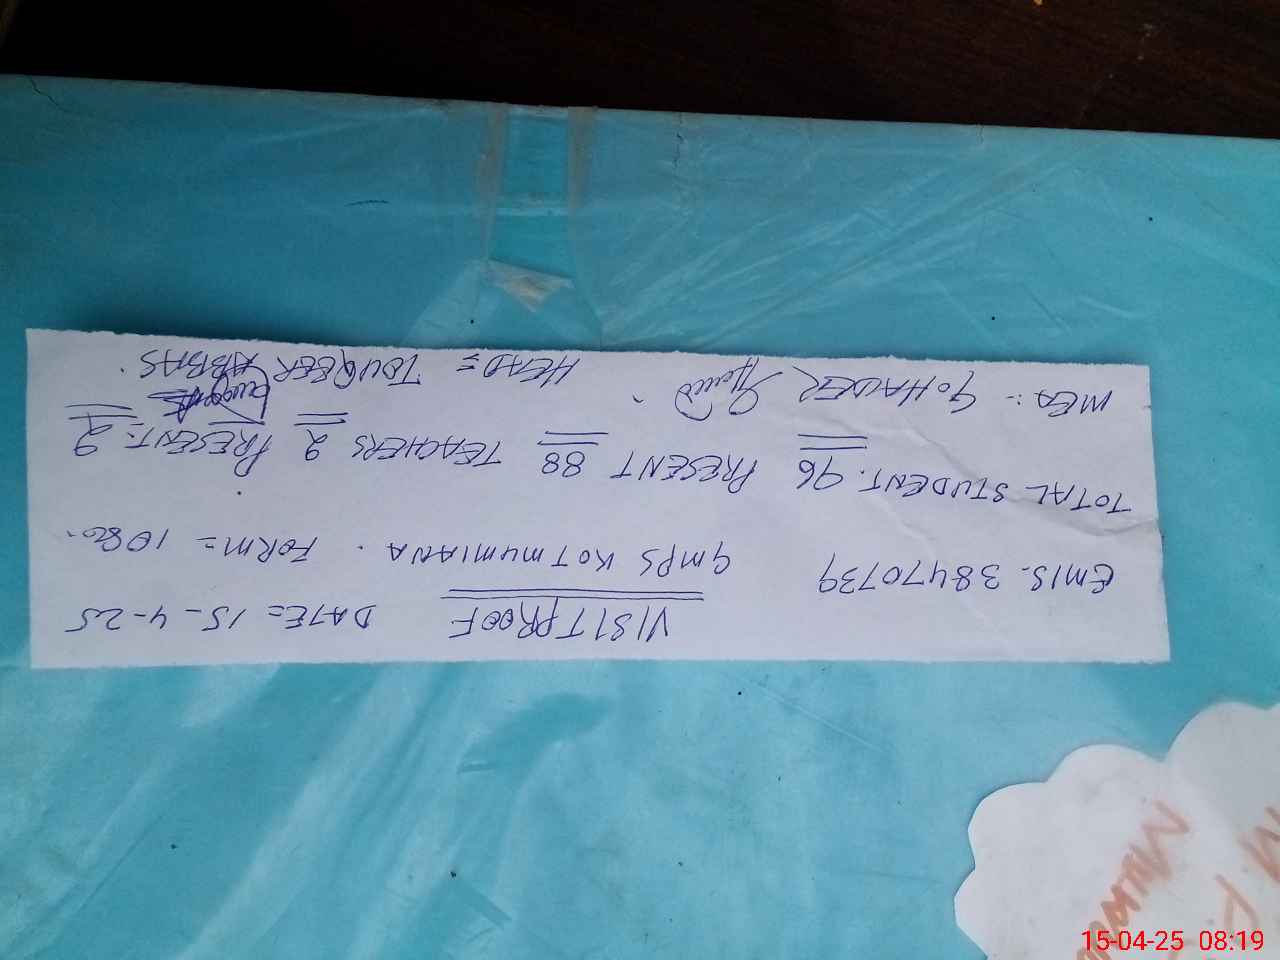 VISIT PROOF DATE = 15-4-25
EMIS. 38470739 GMPS KOTMUMIANA. FORM = 1080.
TOTAL STUDENT. 96 PRESENT 88 TEACHERS 2 PRESENT: 2
MEA:- GOHAUER HEAD = TOUQEER ABBAS.
15-04-25 08:19